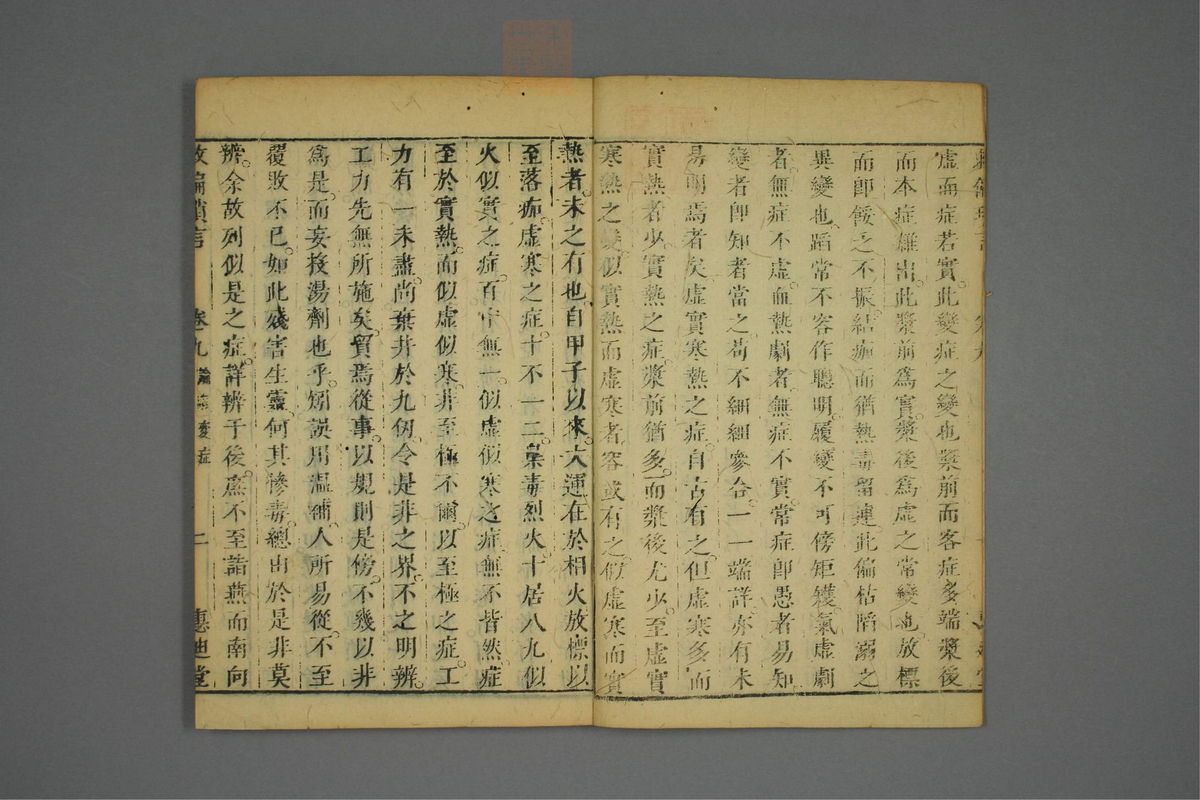 虛而症若實此變症之變也漿前而客症多端漿後
而本症雄出此漿前爲實漿後爲虛之常變也放標
而卽餒乏不振結痂而猶熱毒留連此偏枯陷溺之
異變也蹈常不容作聰明履變不可傍矩矱氣虛劇
者無症不虛血熱劇者無症不實常症卽愚者易知
變者卽知者當之苟不細細參合一一端詳亦有未
易明焉者矣虛實寒熱之症自古有之但虛寒多而
實熱者少實熱之症漿前猶多而漿後尤少至虛實
寒熱之變似實熱而虛寒者容或有之似虛寒而實
熱者未之有也自甲子以來大運在於相火放標以
至落痂虛寒之症十不一二稟毒烈火十居八九似
火似實之症百中無一似虛似寒之症無不皆然症
至於實熱而似虛似寒非至極不爾以至極之症工
力有一未盡尚棄井於九仞令是非之界不之明辨
工力先無所施矣貿焉從事以規則是傍不幾以非
爲是而妄投湯劑也乎矧誤用溫補人所易從不至
覆敗不已如此殘害生靈何其慘毒總由於是非莫
辨余故列似是之症詳辨于後爲不至詣燕而南向
救偏瑣言 卷九 變症 二 惠迪堂